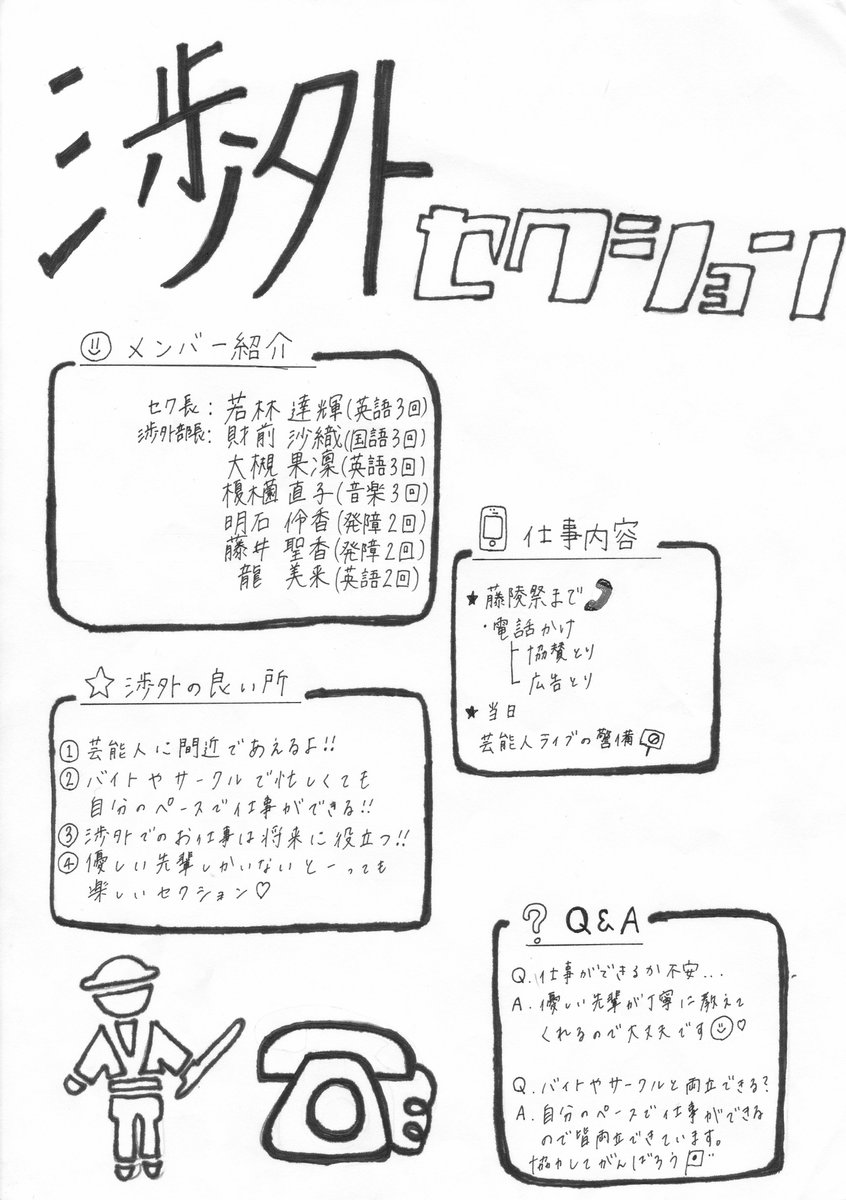 渉外
セクション
メンバー紹介
セク長：若林 達輝(英語3回)
渉外部長：財前 沙織(国語3回)
大槻 果凜(英語3回)
榎薗 直子(音楽3回)
明石 伶香(発障2回)
藤井 聖香(発障2回)
龍 美来(英語2回)
仕事内容
★藤陵祭まで
・電話かけ
協賛とり
広告とり
★当日
芸能人ライブの警備
☆渉外の良い所
①芸能人に間近であえるよ!!
②バイトやサークルで忙しくても
自分のペースで仕事ができる!!
③渉外でのお仕事は将来に役立つ!!
④優しい先輩しかいないとーっても
楽しいセクション♡
? Q&A
Q.仕事ができるか不安...
A.優しい先輩が丁寧に教えて
くれるので大丈夫です♡
Q.バイトやサークルと両立できる?
A.自分のペースで仕事ができる
ので皆両立できています。
協力してがんばろう